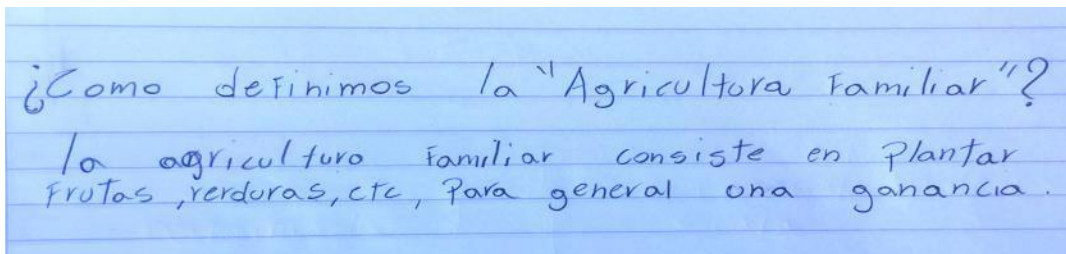 ¿Como definimos la "Agricultura Familiar"?
la agricultura Familiar consiste en Plantar
Frutas, verduras, etc, Para general una ganancia.